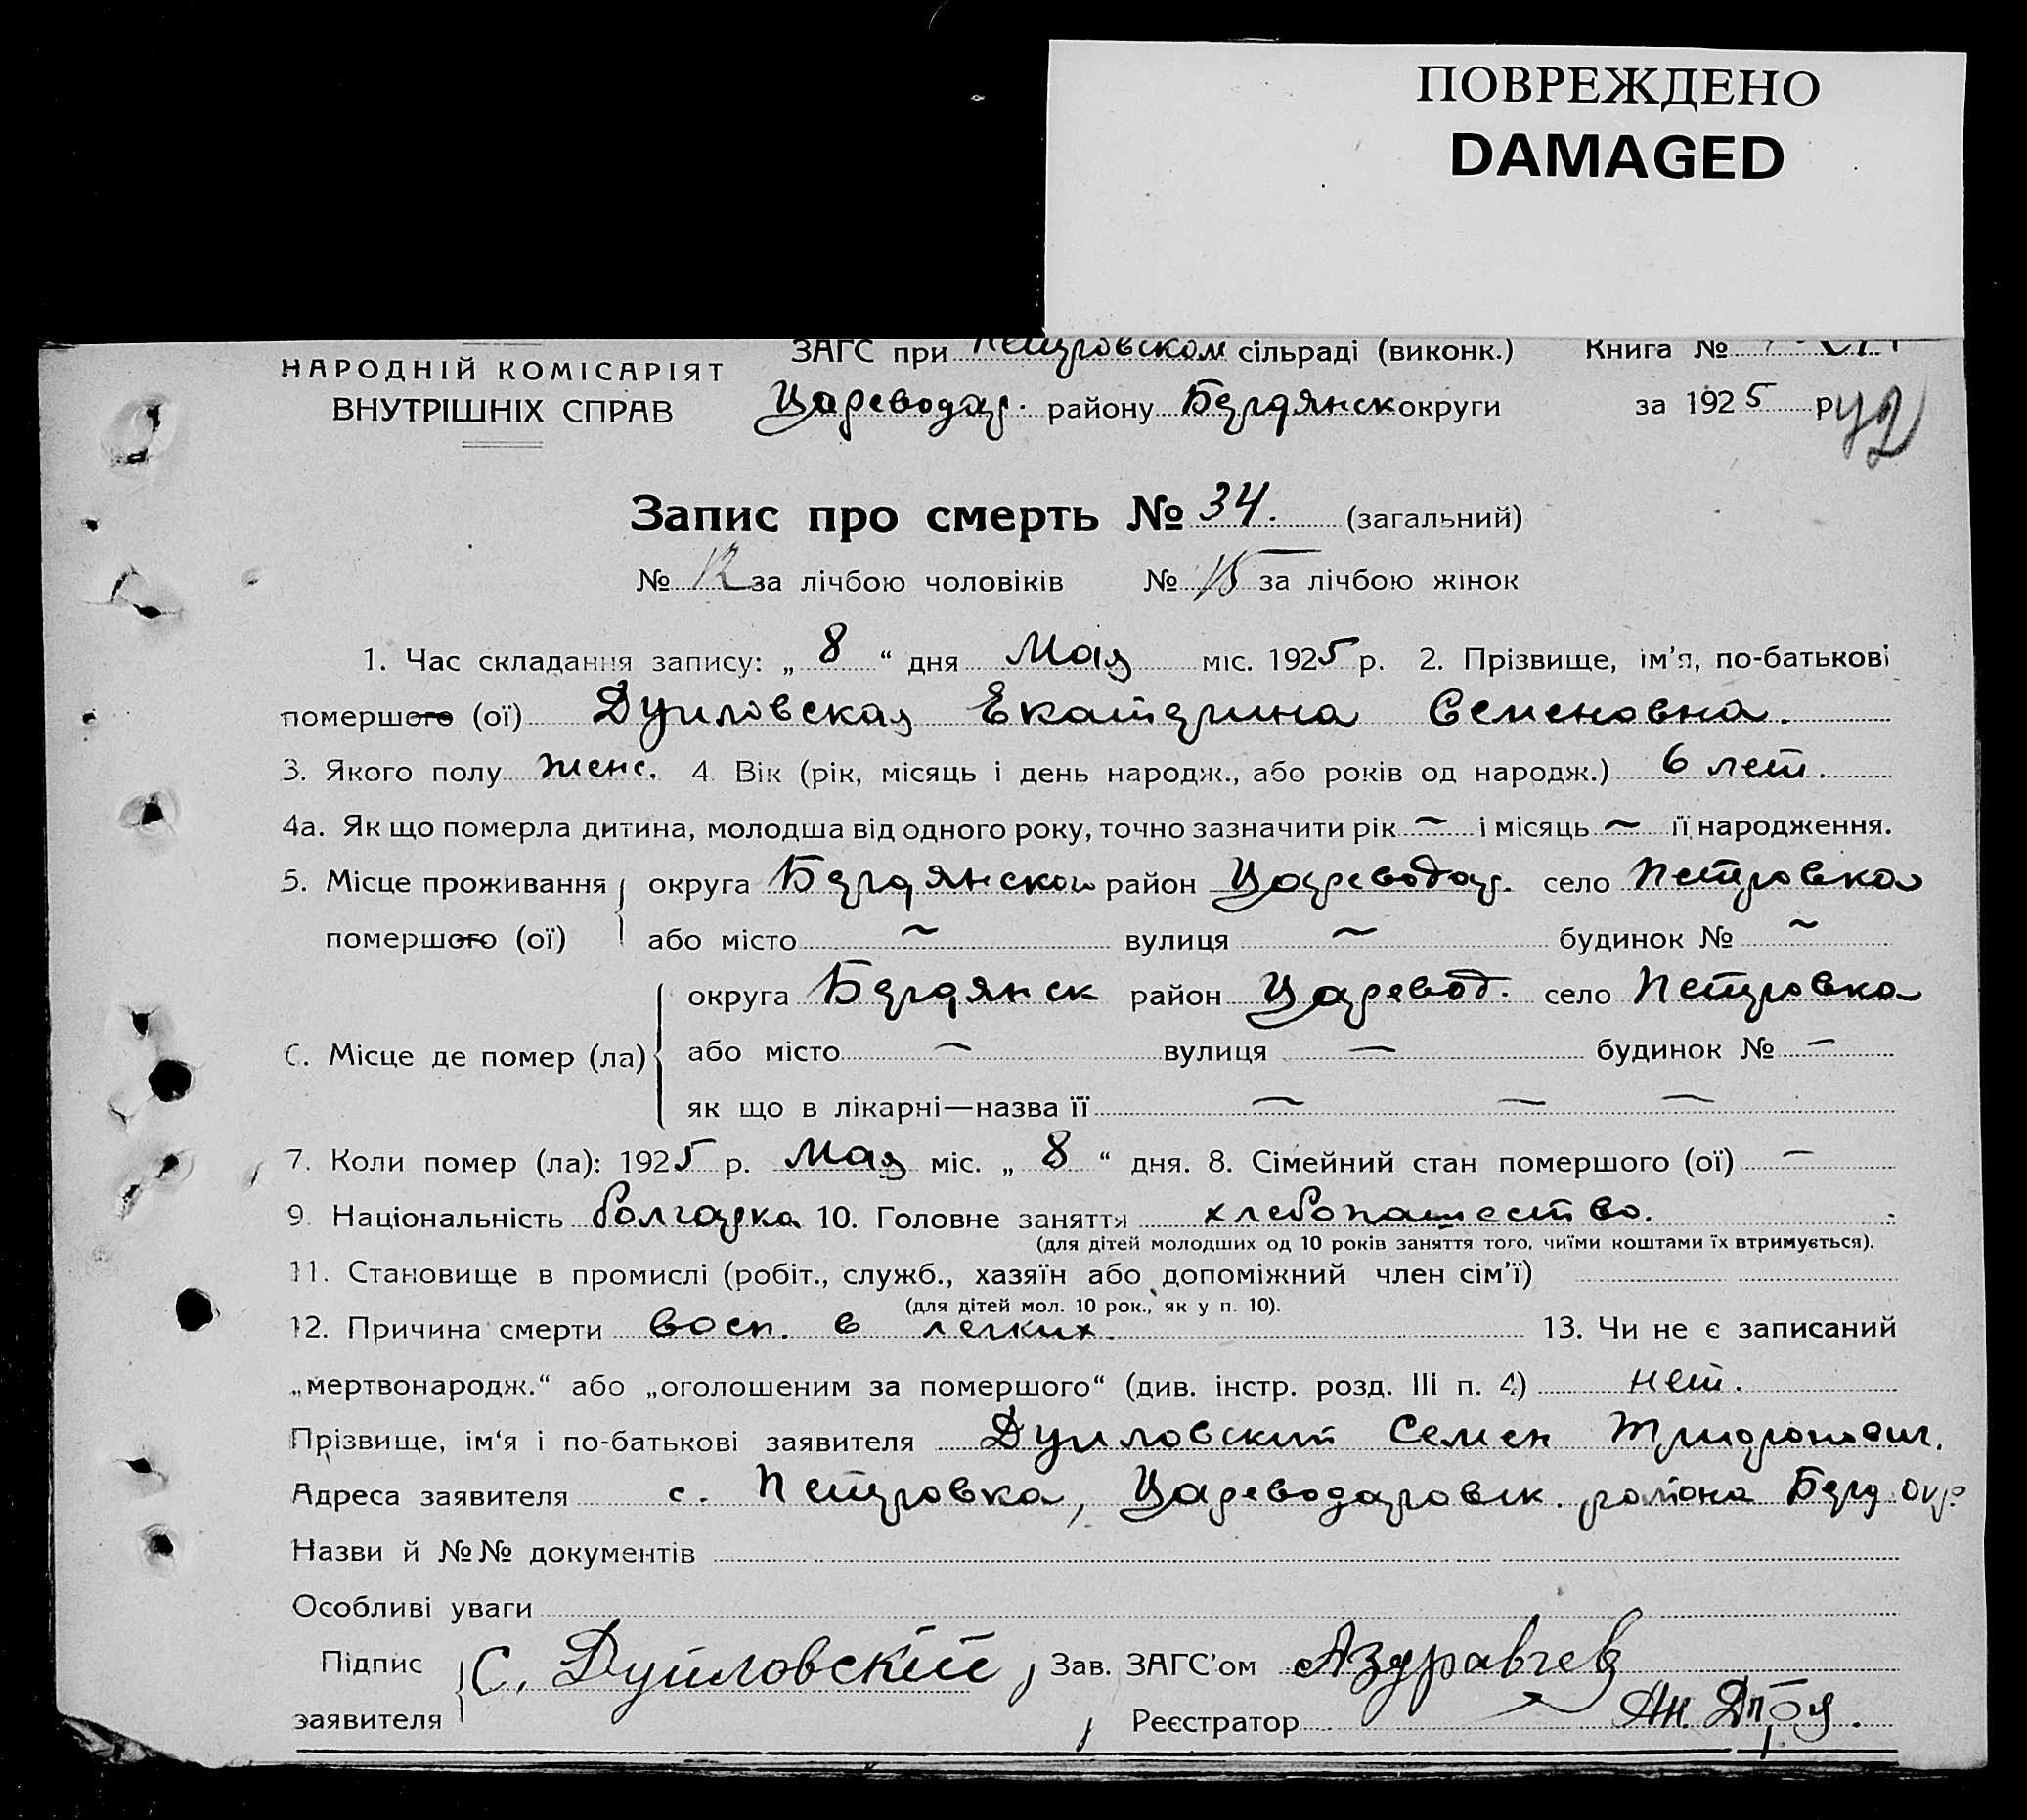 ПОВРЕЖДЕНО
DAMAGED
НАРОДНІЙ КОМІСАРІЯТ
ВНУТРІШНІХ СПРАВ
ЗАГС при Петровском сільраді (виконк.) Книга №
Цареводар. району Бердянск округи за 1925 р. 42
Запис про смерть № 34. (загальний)
№ 12 за лічбою чоловіків № 15 за лічбою жінок
1. Час складання запису: „ 8 “ дня Мая міс. 1925 р. 2. Прізвище, ім’я, по-батькові
помершого (ої) Дуиловская Екатерина Семеновна.
3. Якого полу женс. 4 Вік (рік, місяць і день народж., або років од народж.) 6 лет.
4а. Як що померла дитина, молодша від одного року, точно зазначити рік ~ і місяць ~ її народження.
5. Місце проживання округа Бердянской район Цареводар. село Петровка
помершого (ої) або місто ~ вулиця ~ будинок № ~
округа Бердянск район Царевод. село Петровка
6. Місце де помер (ла) або місто — вулиця — будинок № —
як що в лікарні—назва її — — —
7. Коли помер (ла): 1925 р. Мая міс. „ 8 “ дня. 8. Сімейний стан помершого (ої) —
9. Національність болгарка 10. Головне заняття хлебопашество.
(для дітей молодших од 10 років заняття того, чиїми коштами їх втримується).
11. Становище в промислі (робіт., служб., хазяїн або допоміжний член сім’ї)
(для дітей мол. 10 рок., як у п. 10).
12. Причина смерти восп. в легких. 13. Чи не є записаний
„мертвонародж.“ або „оголошеним за помершого“ (див. інстр. розд. III п. 4) нет.
Прізвище, ім‘я і по-батькові заявителя Дуиловский Семен
Адреса заявителя с. Петровка, Цареводаровск. района Берд. окр.
Назви й №№ документів
Особливі уваги
Підпис заявителя С. Дуиловский Зав. ЗАГС’ом АЗдравчев
Реєстратор Ан.